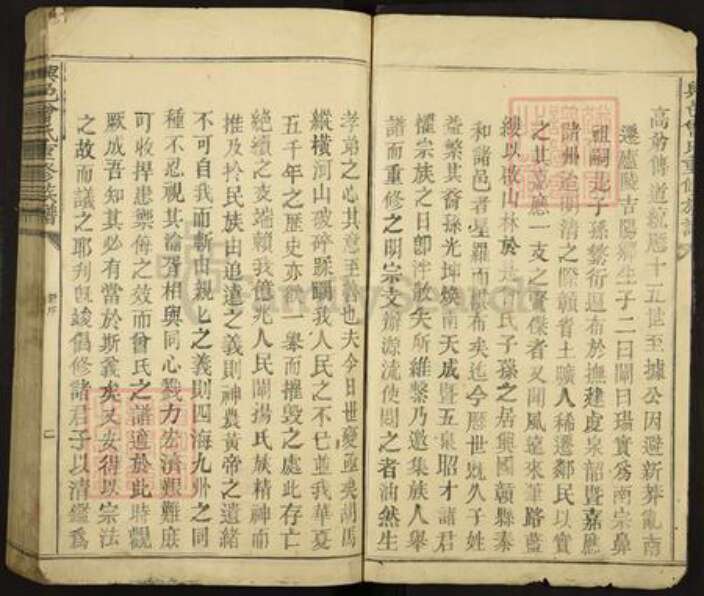 高弟傳道統歷十五世至據公因避新莽亂南
遷廬陵吉陽鄉生子二曰闡曰瑒實爲南宗鼻
祖嗣是子孫繁衍遍布於撫建虔泉韶暨嘉應
諸州迨明清之際贛省土曠人稀遷鄰民以實
之其嘉應一支之賢傑者又聞風遠來篳路藍
縷以啟山林於是曾氏子孫之居興國贛縣泰
和諸邑者星羅而棋布矣迄今歷世旣久子姓
益繁其裔孫光坤煥南天成暨五泉昭才諸君
懼宗族之日卽渙散失所維繫乃邀集族人舉
譜而重修之明宗支辨源流使閱之者油然生
孝弟之心其意至善也夫今日世變亟矣胡馬
縱橫河山破碎蹂躪我人民之不已並我華夏
五千年之歷史亦欲一舉而摧毀之處此存亡
絕續之交端賴我億兆人民闡揚氏族精神而
推及於民族由追遠之義則神農黃帝之遺緒
不可自我而斬由親親之義則四海九州之同
種不忍視其淪胥相與同心戮力宏濟艱難庶
可收捍患禦侮之效而曾氏之譜適於此時觀
厥成吾知其必有當於斯義矣又安得以宗法
之故而議之耶刋旣竣倡修諸君子以清鑑爲
興邑曾氏重修族譜